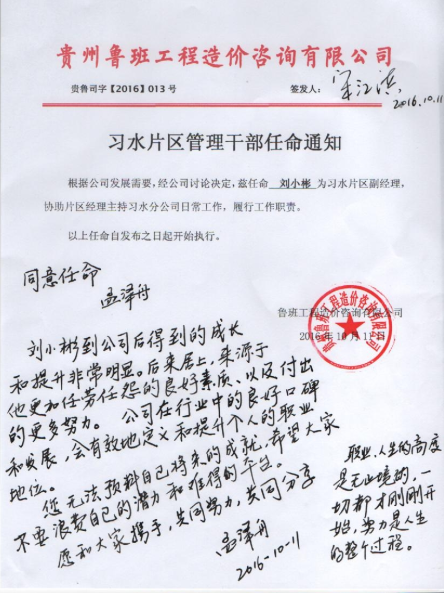 贵州鲁班工程造价咨询有限公司
贵鲁司字【2016】013 号
签发人：
2016.10.11
习水片区管理干部任命通知
根据公司发展需要，经公司讨论决定，兹任命 刘小彬 为习水片区副经理，
协助片区经理主持习水分公司日常工作，履行工作职责。
以上任命自发布之日起开始执行。
同意任命
孟泽舟
鲁班工程造价咨询有限公司
2016年10月11日
刘小彬到公司后得到的成长
和提升非常明显。后来居上，来源于
他更加任劳任怨的良好素质、以及付出
的更多努力。公司在行业中的良好口碑
和发展，会有效地定义和提升个人的职业
地位。
您无法预料自己将来的成就，希望大家
不要浪费自己的潜力和难得的平台。
愿和大家携手，共同努力，共同分享
孟泽舟
2016-10-11
职业、人生的高度
是无止境的，一
切都才刚刚开
始，努力是人生
的整个过程。